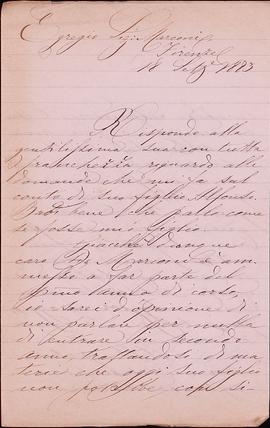 Egregio Sig: Marconi
Firenze
18 1883
Rispondo alla
gentilissima sua con tutta
franchezza riguardo alle
domande che mi fa sul
conto di suo figlio Alfonso.
Badi bene che parlo come
se fosse mio figlio.
Giacchè dunque
caro Sig. Marconi è am-
messo a far parte del
primo anno di corso,
io sarei d'opinione di
non parlare per nulla
di entrare in secondo
anno, trattandosi di ma-
terie che oggi suo figlio
non potrebbe con si-